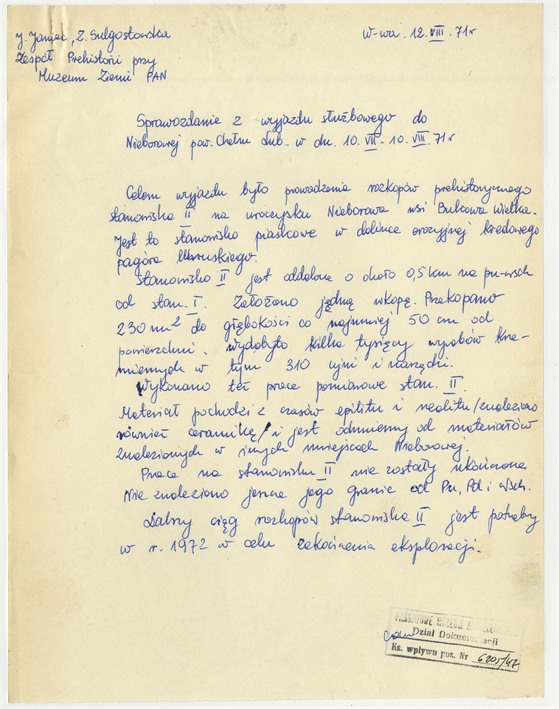 J. Janiec, Z. Sulgostowska
Zespół Prehistorii przy
Muzeum Ziemi PAN
W-wa. 12.VIII.71r
Sprawozdanie z wyjazdu służbowego do
Nieborowej pow. Chełm Lub. w dn. 10.VII-10.VIII.71r
Celem wyjazdu było prowadzenie rozkopów prehistorycznego
stanowiska II na uroczysku Nieborowa wsi Bukowa Wielka.
Jest to stanowisko piaskowe w dolince erozyjnej kredowego
pagóra Uhruskiego.
Stanowisko II jest oddalone o około 0,5 km na pn-wsch
od stan. I. Założono jedną wkopę. Przekopano
230 m2 do głębokości co najmniej 50 cm od
powierzchni. Wydobyto kilka tysięcy wyrobów krze-
miennych w tym 310 rdzeni i narzędzi.
Wykonano też prace pomiarowe stan. II.
Materiał pochodzi z czasów epilitu i neolitu /znaleziono
również ceramikę/ i jest odmienny od materiałów
znalezionych w innych miejscach Nieborowej.
Prace na stanowisku II nie zostały ukończone.
Nie znaleziono jeszcze jego granic od Pn, Pd i Wsch.
Dalszy ciąg rozkopów stanowiska II jest potrzebny
w r. 1972 w celu zakończenia eksploracji.
Dział Dokumentacji
Ks. wpływu poz. Nr 6201/47